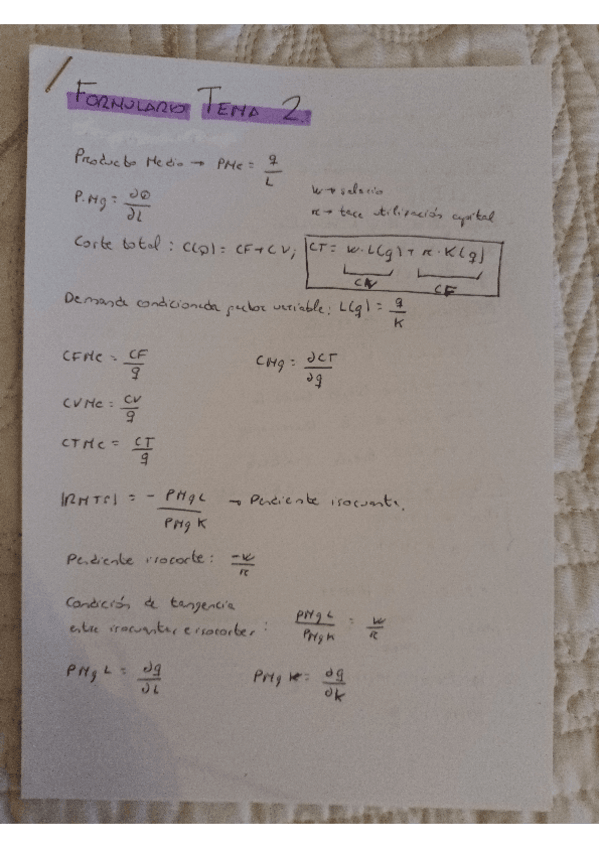 FORMULARIO TEMA 2.
Producto Medio → PMe = q/L
w → salario
P.Mg = ∂Q/∂L
r → tasa utilización capital
Coste total: C(Q) = CF + CV; CT = w·L(q) + r·K(q)
CV CF
Demanda condicionada factor variable: L(q) = q/K
CFMe = CF/q CMg = ∂CT/∂q
CVMe = CV/q
CTMe = CT/q
|RMTS| = - PMgL/PMgK → Pendiente isocuanta.
Pendiente isocoste: -w/r
Condición de tangencia
entre isocuantas e isocostes: PMgL/PMgK = w/r
PMgL = ∂q/∂L PMgK = ∂q/∂K